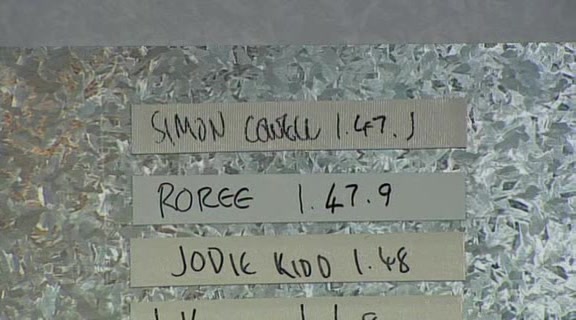 SIMON COWELL 1.47.1
ROREE 1.47.9
JODIE KIDD 1.48